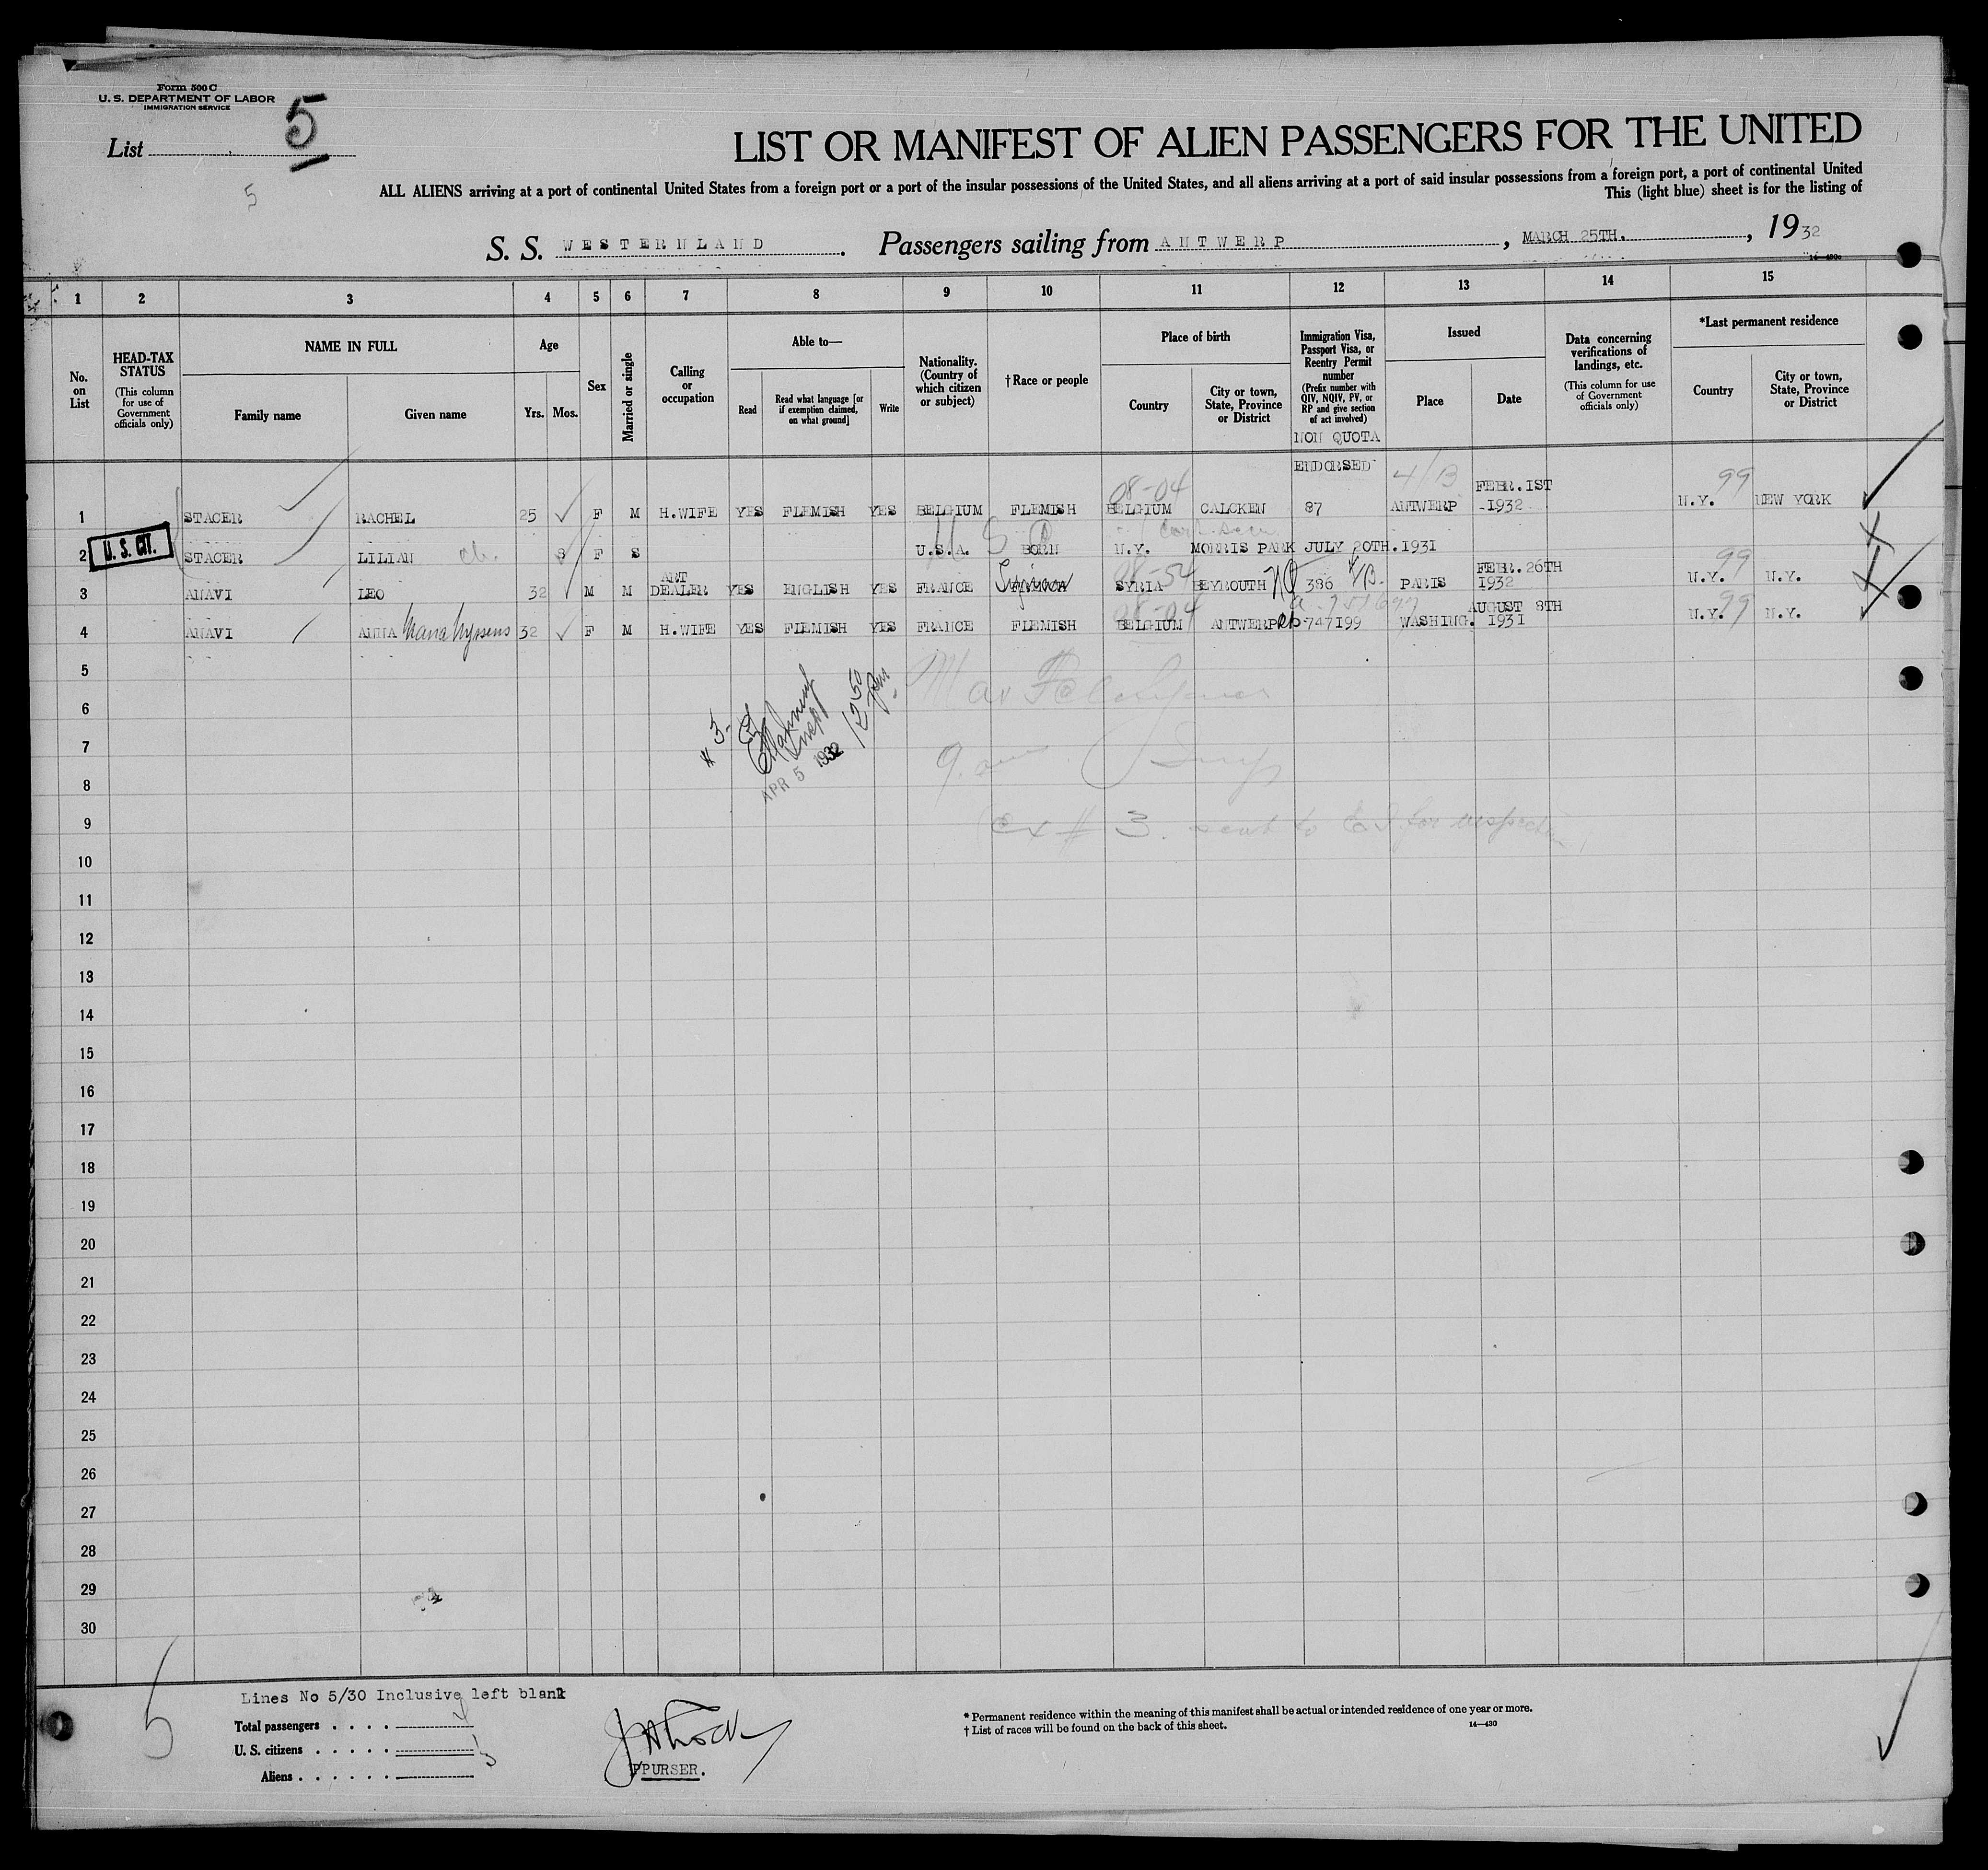 Form 500 C
U. S. DEPARTMENT OF LABOR
IMMIGRATION SERVICE
List 5
5
LIST OR MANIFEST OF ALIEN PASSENGERS FOR THE UNITED
ALL ALIENS arriving at a port of continental United States from a foreign port or a port of the insular possessions of the United States, and all aliens arriving at a port of said insular possessions from a foreign port, a port of continental United
This (light blue) sheet is for the listing of
S. S. WESTERNLAND. Passengers sailing from ANTWERP, MARCH 25TH., 1932
1 2 3 4 5 6 7 8 9 10 11 12 13 14 15
No. on List
HEAD-TAX STATUS
(This column for use of Government officials only)
NAME IN FULL
Family name
Given name
Age
Yrs. Mos.
Sex
Married or single
Calling or occupation
Able to—
Read
Read what language [or if exemption claimed, on what ground]
Write
Nationality. (Country of which citizen or subject)
†Race or people
Place of birth
Country
City or town, State, Province or District
Immigration Visa, Passport Visa, or Reentry Permit number
(Prefix number with QIV, NQIV, PV, or RP and give section of act involved)
NON QUOTA
ENDORSED
Issued
Place
Date
Data concerning verifications of landings, etc.
(This column for use of Government officials only)
*Last permanent residence
Country
City or town, State, Province or District
08-04 4/13 FEBR.1ST 99
1 STACER RACHEL 25 F M H.WIFE YES FLEMISH YES BELGIUM FLEMISH BELGIUM CALCKEN 87 ANTWERP 1932 N.Y. NEW YORK
U. S. CIT.
2 STACER LILIAN 8 F S U.S.A. BORN N.Y. MORRIS PARK JULY 20TH.1931
ART Syrian 08-54 FEBR.26TH 99
3 ANAVI LEO 32 M M DEALER YES ENGLISH YES FRANCE SYRIA BEYROUTH 386 PARIS 1932 N.Y. N.Y.
08-04 AUGUST 8TH 99
4 ANAVI ANNA 32 F M H.WIFE YES FLEMISH YES FRANCE FLEMISH BELGIUM ANTWERP 747199 WASHING. 1931 N.Y. N.Y.
5
6
7
# 3-
APR 5 1932
8
9
ex # 3. sent to E I for inspection
10
11
12
13
14
15
16
17
18
19
20
21
22
23
24
25
26
27
28
29
30
5
Lines No 5/30 Inclusive left blank
Total passengers
U. S. citizens
Aliens
PPURSER.
* Permanent residence within the meaning of this manifest shall be actual or intended residence of one year or more.
† List of races will be found on the back of this sheet.
14—430